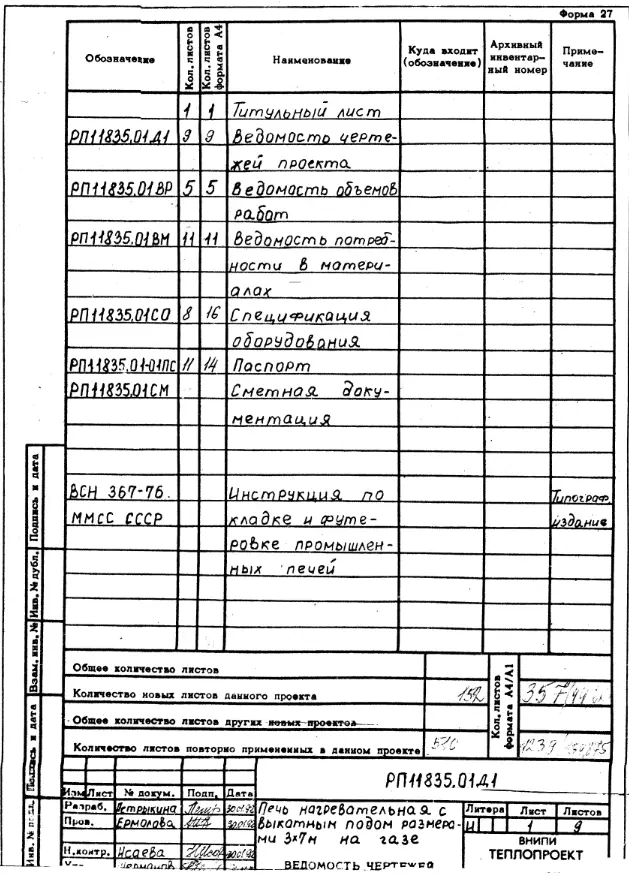 Форма 27
Обозначение Кол. листов Кол. листов формата А4 Наименование Куда входит (обозначение) Архивный инвентарный номер Примечание
1 1 Титульный лист
РП11835.01Д1 9 9 Ведомость черте-
жей проекта
РП11835.01ВР 5 5 Ведомость объемов
работ
РП11835.01ВМ 11 11 Ведомость потреб-
ности в матери-
алах
РП11835.01СО 8 16 Спецификация
оборудования
РП11835.01-01ПС 11 14 Паспорт
РП11835.01СМ Сметная доку-
ментация
ВСН 367-76. Инструкция по Типограф.
ММСС СССР кладке и футе- издание
ровке промышлен-
ных печей
Общее количество листов
Количество новых листов данного проекта 152
Кол. листов формата А4/А1
Общее количество листов других новых проектов
Количество листов повторно примененных в данном проекте
Подпись и дата
Инв. № дубл.
Взам. инв. №
Подпись и дата
Инв. № подл.
РП11835.01Д1
Изм Лист № докум. Подп. Дата
Разраб. Петрыкина
Пров. Ермолова
Н.контр. Исаева
Печь нагревательная с
выкатным подом размера-
ми 3х7м на газе
ВЕДОМОСТЬ ЧЕРТЕЖЕЙ
Литера Лист Листов
И 1 9
ВНИПИ
ТЕПЛОПРОЕКТ